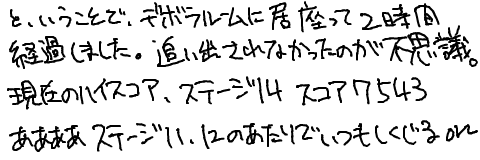 と、いうことで、デボラルームに居座って2時間
経過しました。追い出されなかったのが不思議。
現在のハイスコア、ステージ14 スコア7543
ああああ ステージ11、12のあたりでいつもしくじるorz